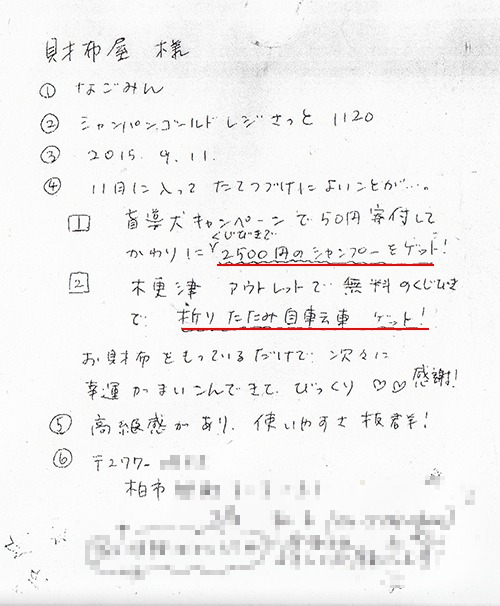 財布屋 様
① なごみん
② シャンパンゴールド レジさっと 1120
③ 2015. 9. 11.
④ 11月に入って たてつづけに よいことが…。
1 盲導犬キャンペーンで 50円 寄付して
くじびきで
かわりに 2500円のシャンプーをゲット!
2 木更津 アウトレットで 無料のくじびき
で 折りたたみ自転車 ゲット!
お財布をもっているだけで 次々に
幸運がまいこんできて びっくり ♡♡ 感謝!
⑤ 高級感があり、使いやすさ 抜群!
⑥ 〒277-
柏市